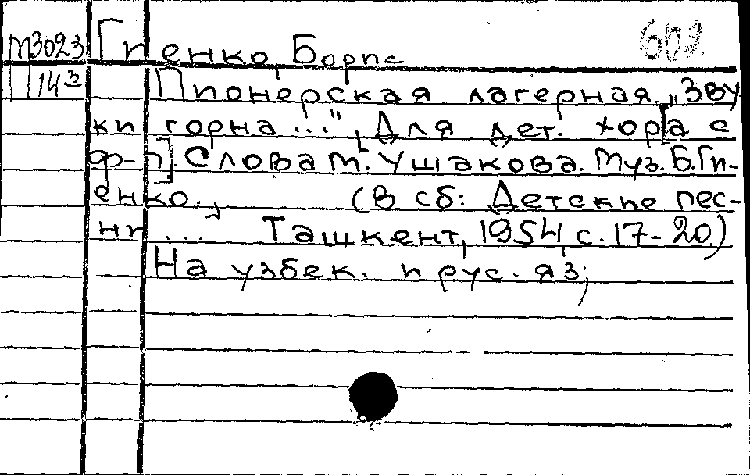 М3023 Гиенко, Борис
14з Пионерская лагерная „Зву
ки горна...", [Для дет. хора с
ф-п]. Слова М. Ушакова. Муз. Б. Ги-
енко., (В сб: Детские пес-
ни... Ташкент, 1954, с. 17-20)
На узбек. и рус. яз;